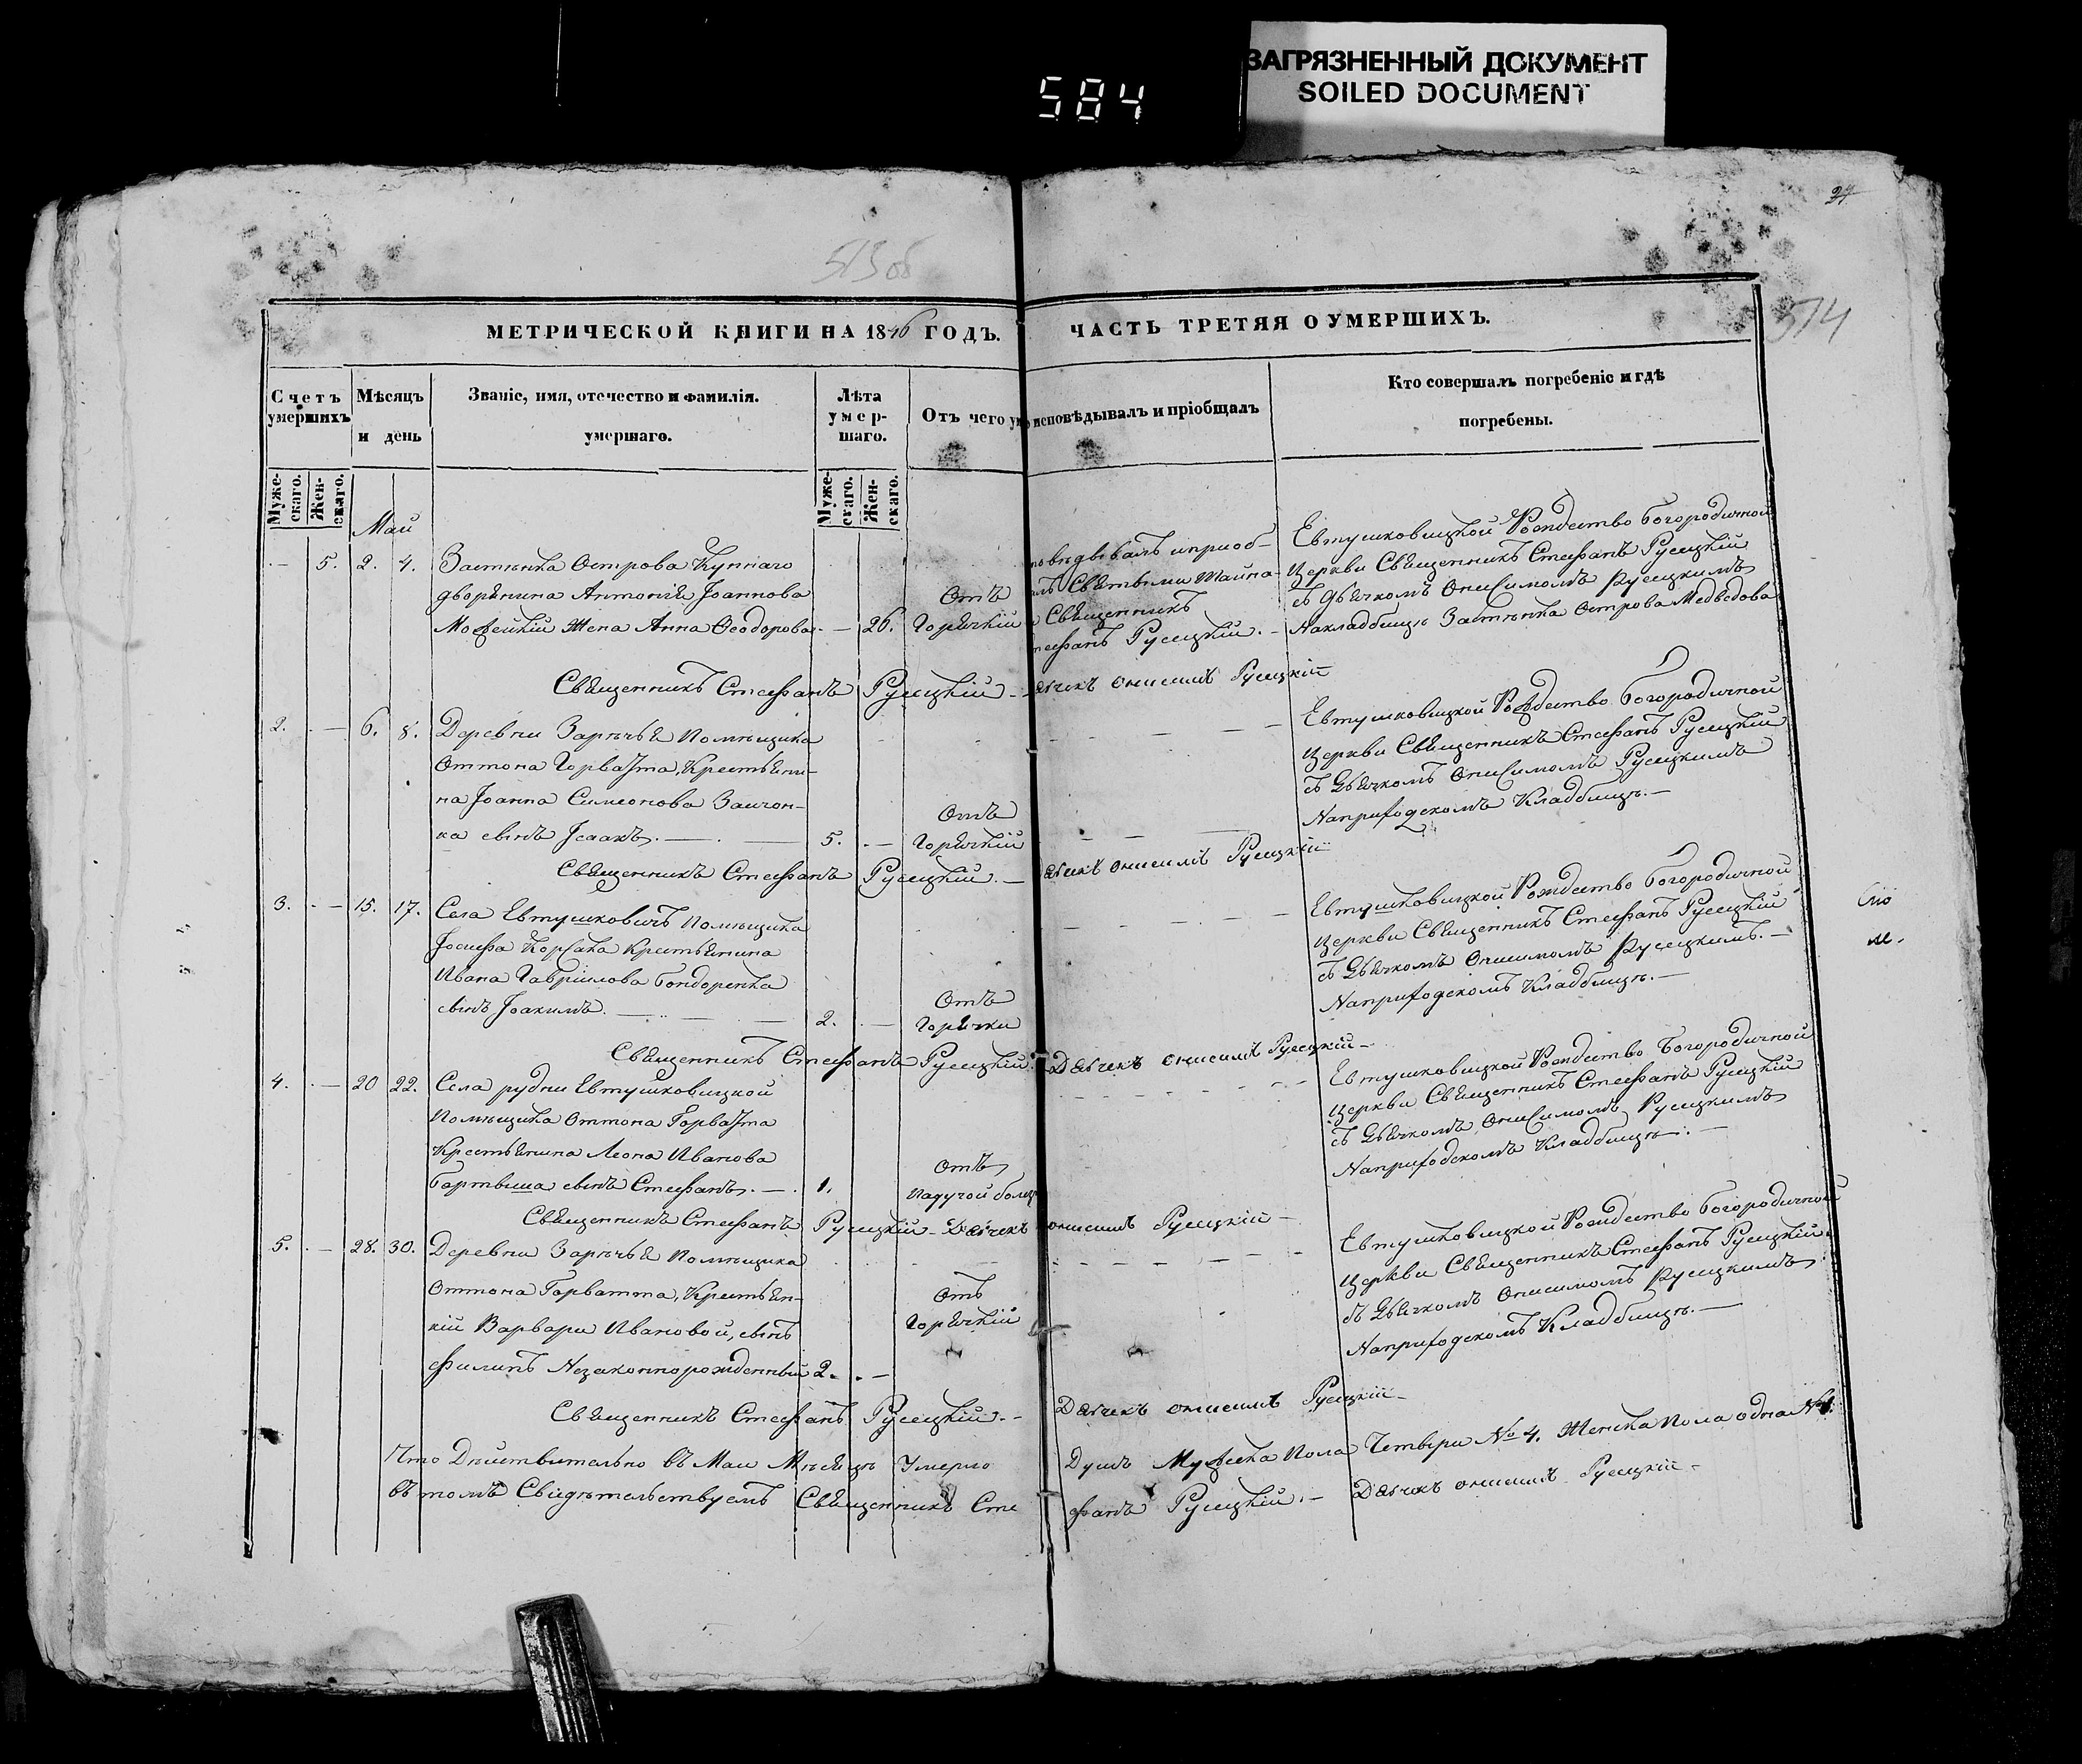 ЗАГРЯЗНЕННЫЙ ДОКУМЕНТ
SOILED DOCUMENT
584
24
513об
514
МЕТРИЧЕСКОЙ КНИГИ НА 1846 ГОДЪ. ЧАСТЬ ТРЕТЯЯ О УМЕРШИХЪ.
Счетъ умершихъ
Мѣсяцъ и день
Званіе, имя, отечество и фамилія. умершаго.
Лѣта умершаго.
Отъ чего ум
исповѣдывалъ и пріобщалъ
Кто совершалъ погребеніе и гдѣ погребены.
Мужескаго. Женскаго.
Мужескаго. Женскаго.
Май
— 5. 2. 4. Застѣнка Острова Купнаго
дворянина Антонія Іоаннова
Можейкій Жена Анна Ѳеодорова — 26.
Отъ
Горячкій
повѣдывалъ и приоб-
алъ Святыми Тайна-
Священникъ
тефанъ Русецкій.
Евтушковицкой Рождество Богородичной
Церкви Священникъ Стефанъ Русецкій
съ дьячкомъ Онисимомъ Русецкимъ
На кладбищѣ Застѣнка Острова Медвѣдова
Священникъ Стефанъ Русецкій — дьячекъ Онисимъ Русецкій
2. — 6. 8. Деревни Зарѣчья Помѣщика
Оттона Горватта, Крестьяни-
на Іоанна Симеонова Заичон-
ка сынъ Ісаакъ. — 5. —
Отъ
Горячкій
Евтушковицкой Рождество Богородичной
Церкви Священникъ Стефанъ Русецкій
съ Дьячкомъ Онисимомъ Русецкимъ
На приходскомъ Кладбищѣ.—
Священникъ Стефанъ Русецкій. — дьячекъ Онисимъ Русецкій
3. — 15. 17. Села Евтушковичъ Помѣщика
Іосифа Корсака Крестьянина
Ивана Гавріилова Бондоренка
сынъ Іоакимъ. — 2. —
Отъ
Горячки
Евтушковицкой Рождество Богородичной
Церкви Священникъ Стефанъ Русецкій
съ Дьячкомъ Онисимомъ Русецкимъ.—
На приходскомъ Кладбищѣ.—
Священникъ Стефанъ Русецкій. Дьячекъ Онисимъ Русецкій—
4. — 20 22. Села рудни Евтушковицкой
Помѣщика Оттона Горватта
Крестьянина Леона Иванова
сынъ Стефанъ. — 1.
Отъ
Падучой
Евтушковицкой Рождество Богородичной
Церкви Священникъ Стефанъ Русецкій
съ Дьячкомъ Онисимомъ Русецкимъ
На приходскомъ Кладбищѣ.—
Священникъ Стефанъ Русецкій — Дьячекъ Онисимъ Русецкій—
5. — 28. 30. Деревни Зарѣчья Помѣщика
Оттона Горватта, Крестьян-
кій Варвары Ивановой, сынъ
Филипъ Незаконнорожденный 2. —
Отъ
Горячкій
Евтушковицкой Рождество Богородичной
Церкви Священникъ Стефанъ Русецкій.
съ Дьячкомъ Онисимомъ Русецкимъ
На приходскомъ Кладбищѣ.—
Священникъ Стефанъ Русецкій.— Дьячекъ Онисимъ Русецкій—
Что Дѣйствительно въ Маи Мѣсяцѣ Умерло Душъ Мужеска Пола Четыри № 4. Женска Пола одна № 1.
въ томъ Свидѣтельствуемъ Священникъ Стефанъ Русецкій.— Дьячекъ Онисимъ Русецкій—